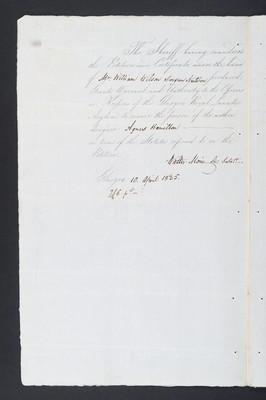 The Sheriff having considered
the Petition and Certificate under the hand
of Mr William Wilson Surgeon produced,
Grants Warrant and Authority to the
Keepers of the Glasgow Royal Lunatic
Asylum to the person of the within
designed Agnes Hamilton
in terms of the Statutes referred to in the
Petition.
Glasgow 10 April 1835.
2/6